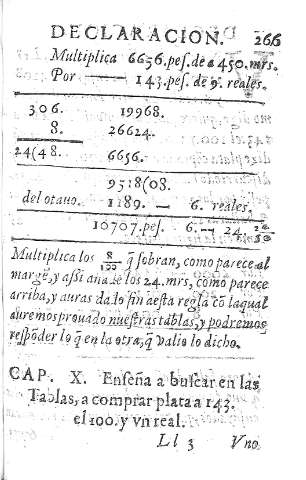 DECLARACION. 266
Multiplica 6656.pes.de a 450.mrs.
Por 143.pes. de 9. reales.
306. 19968.
8. 26624.
24(48. 6656.
9518(08.
del otauo. 1189. — 6. reales.
10707.pes. 6. — 24.
Multiplica los 8/100 q̃ sobran, como parece al
margẽ, y assi añade los 24. mrs, como parece
arriba, y auras dado fin a esta regla cõ la qual
auremos prouado nuestras tablas, y podremos
respõder lo q̃ en la otra, q̃ valio lo dicho.
CAP. X. Enseña a buscar en las
Tablas, a comprar plata a 143.
el 100. y vn real.
Ll 3 Vno